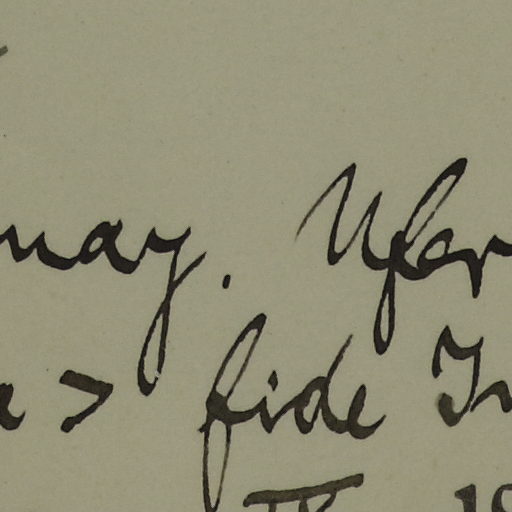 may. Ufer
> fide
IX 19